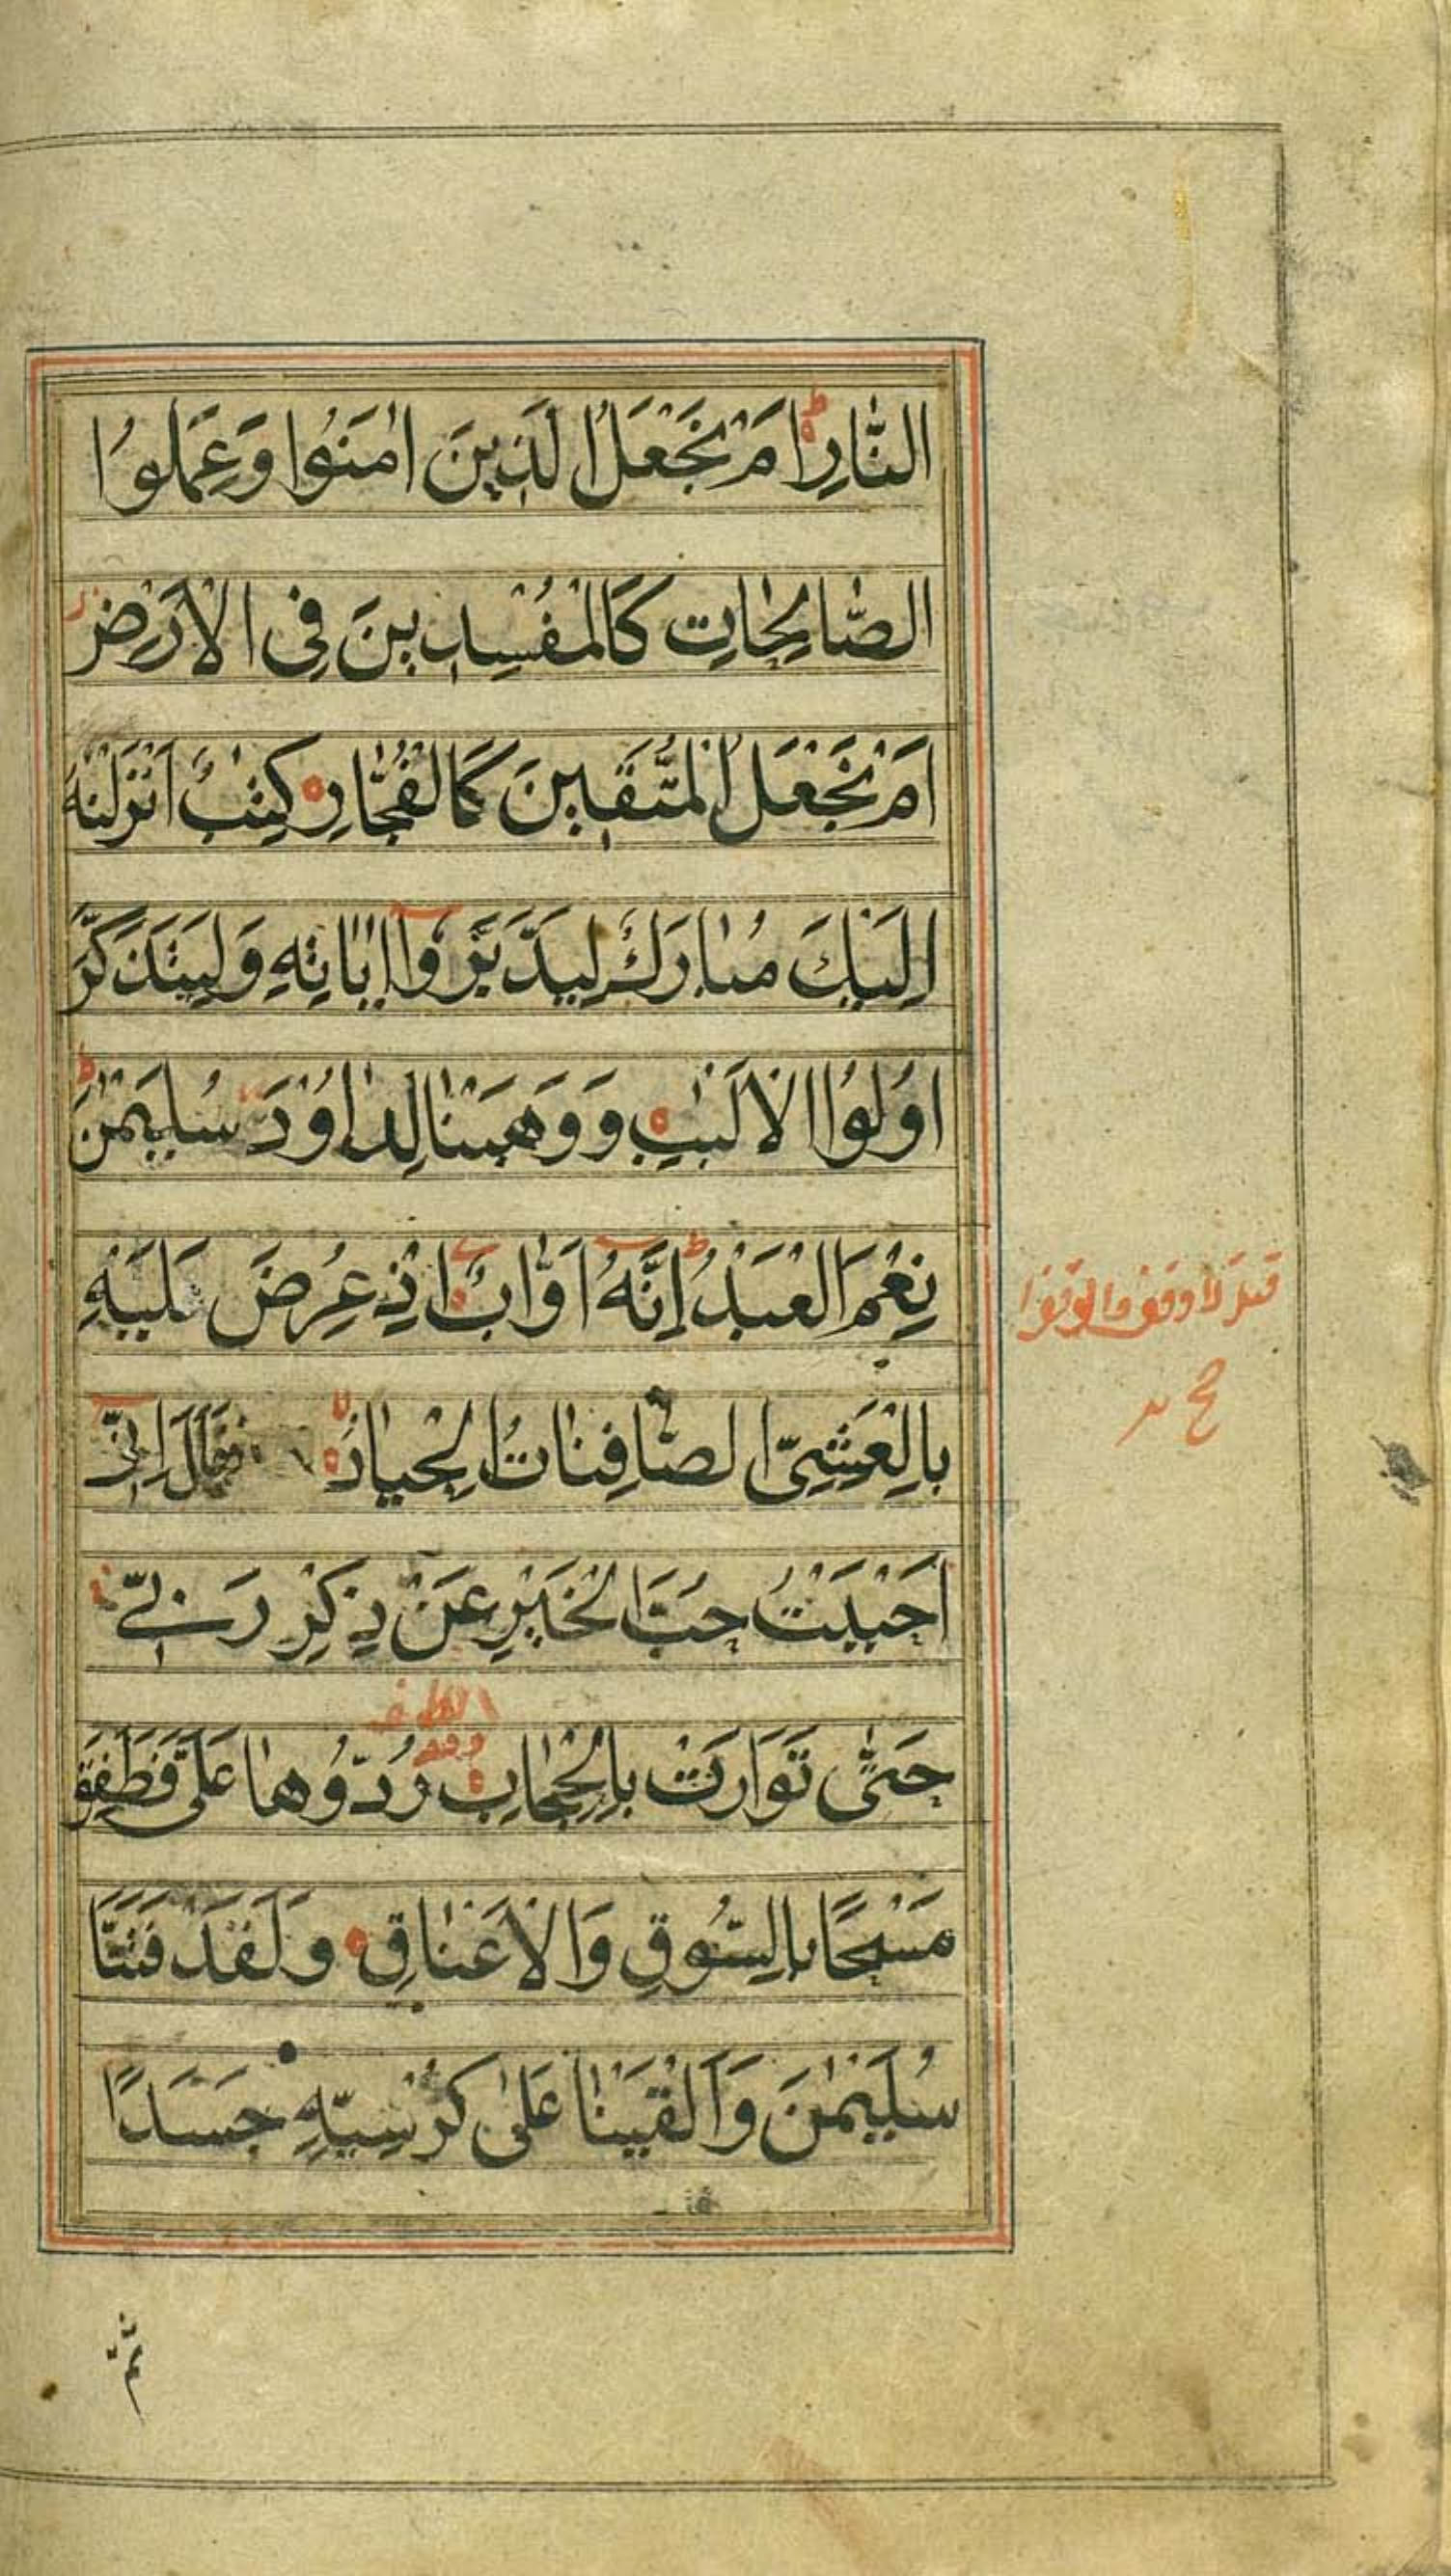 النَّارِ اَمْ نَجْعَلُ الَّذِينَ اٰمَنُوا وَعَمِلُوا
الصَّالِحَاتِ كَالْمُفْسِدِينَ فِى الْاَرْضِ
اَمْ نَجْعَلُ الْمُتَّقِينَ كَالْفُجَّارِ كِتٰبٌ اَنْزَلْنٰهُ
اِلَيْكَ مُبَارَكٌ لِيَدَّبَّرُوا اٰيَاتِهِ وَلِيَتَذَكَّرَ
اُولُوا الْاَلْبٰبِ وَوَهَبْنَا لِدَاوُدَ سُلَيْمٰنَ
نِعْمَ الْعَبْدُ اِنَّهُ اَوَّابٌ اِذْ عُرِضَ عَلَيْهِ
بِالْعَشِىِّ الصَّافِنَاتُ الْجِيَادُ فَقَالَ اِنِّى
اَحْبَبْتُ حُبَّ الْخَيْرِ عَنْ ذِكْرِ رَبِّى
حَتّٰى تَوَارَتْ بِالْحِجَابِ رُدُّوهَا عَلَىَّ فَطَفِقَ
مَسْحًا بِالسُّوقِ وَالْاَعْنَاقِ وَلَقَدْ فَتَنَّا
سُلَيْمٰنَ وَاَلْقَيْنَا عَلٰى كُرْسِيِّهِ جَسَدًا
ثُمَّ